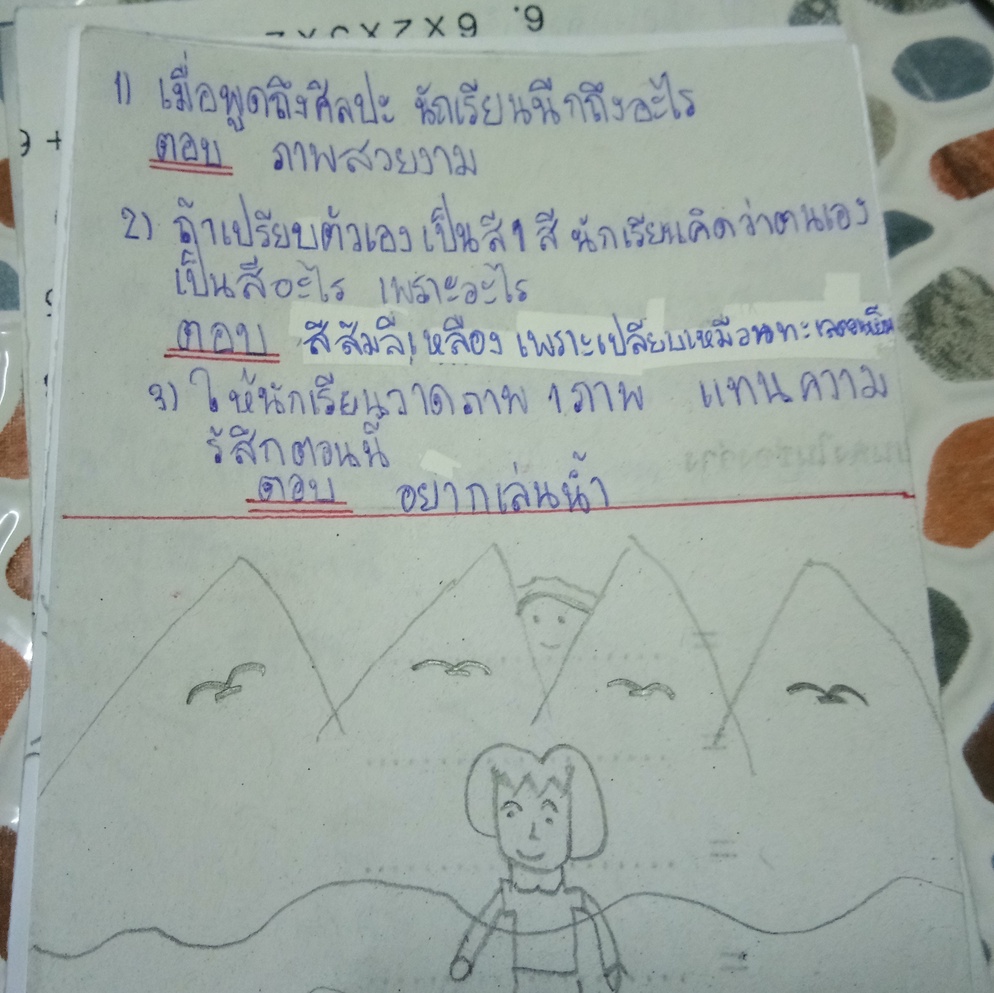 6. 6×7×
1) เมื่อพูดถึงศิลปะ นักเรียนนึกถึงอะไร
ตอบ ภาพสวยงาม
2) ถ้าเปรียบตัวเองเป็นสี 1 สี นักเรียนคิดว่าตนเอง
เป็นสีอะไร เพราะอะไร
ตอบ สีส้มสีเหลือง เพราะเปลียบเหมือน
3) ให้นักเรียนวาดภาพ 1 ภาพ แทนความ
รู้สึกตอนนี้
ตอบ อยากเล่นน้ำ